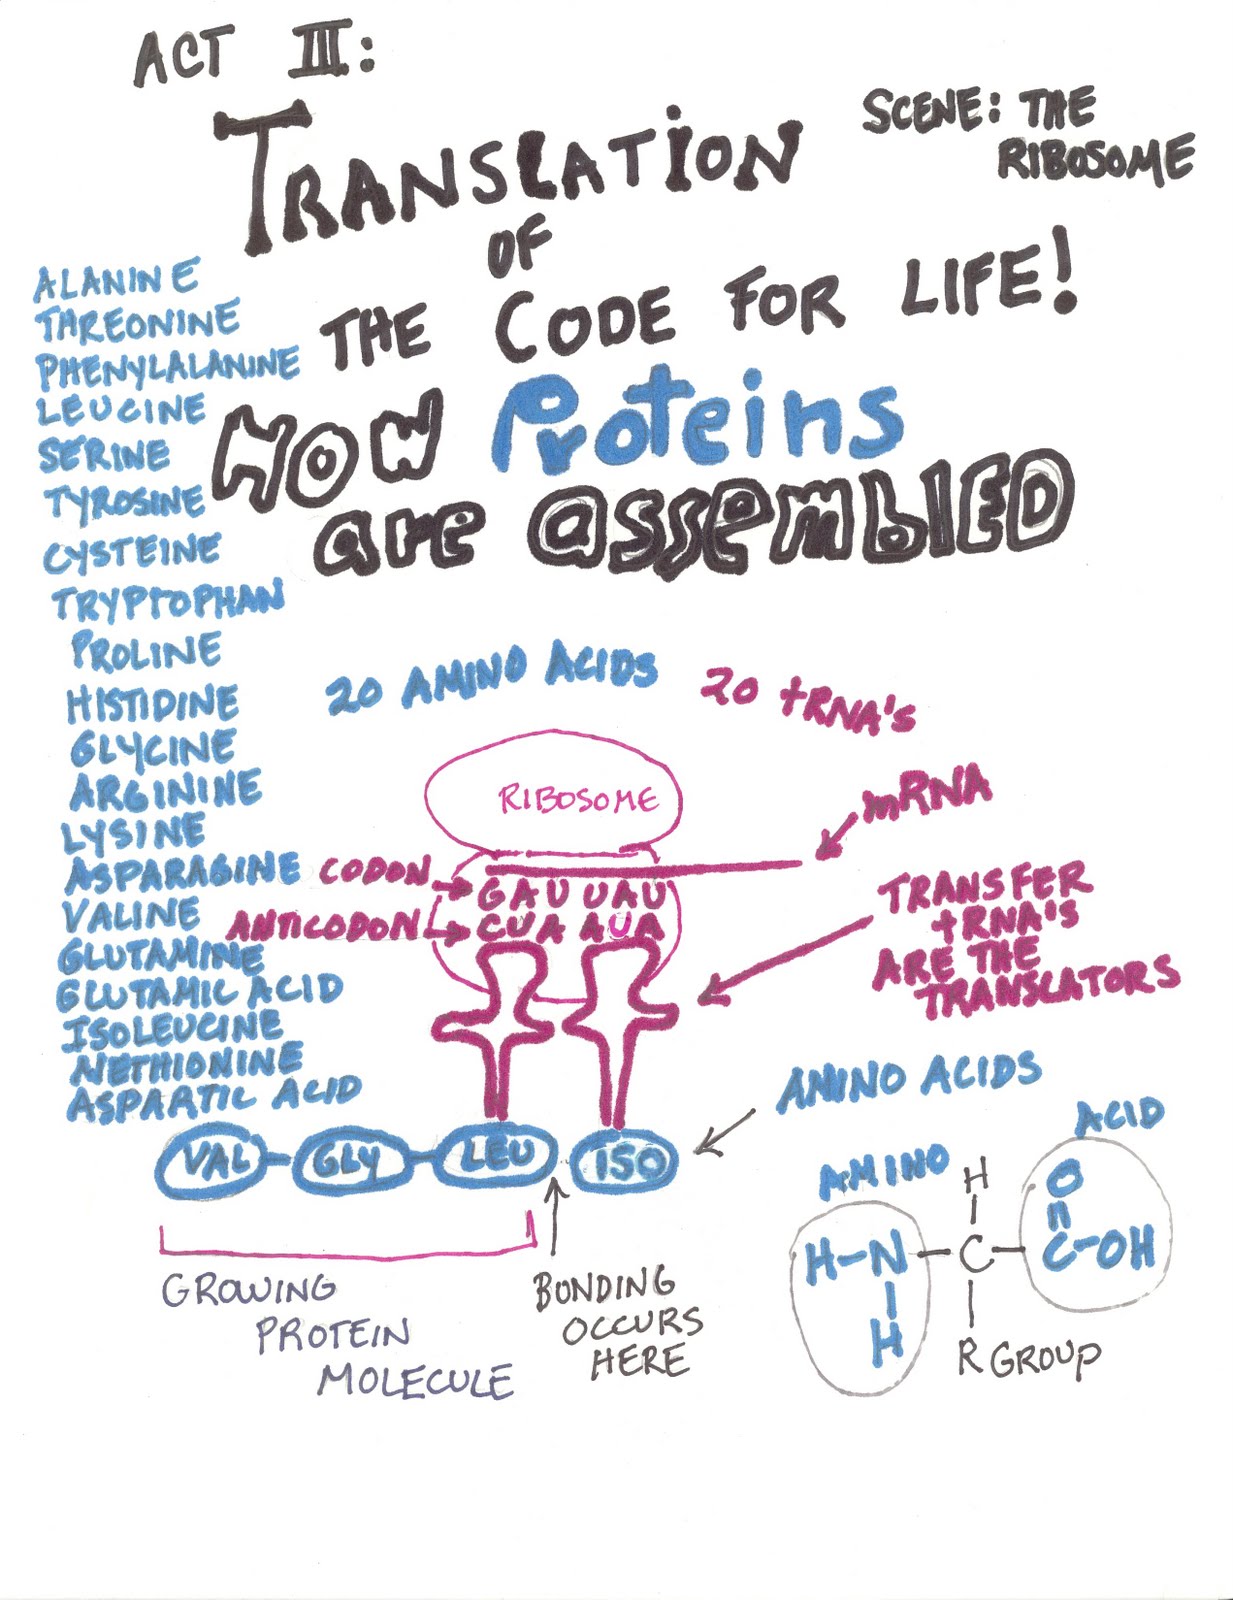 ACT III:
SCENE: THE
RIBOSOME
TRANSLATION
OF
THE CODE FOR LIFE!
HOW Proteins
are assemblED
ALANINE
THREONINE
PHENYLALANINE
LEUCINE
SERINE
TYROSINE
CYSTEINE
TRYPTOPHAN
PROLINE
HISTIDINE
GLYCINE
ARGININE
LYSINE
ASPARAGINE
VALINE
GLUTAMINE
GLUTAMIC ACID
ISOLEUCINE
METHIONINE
ASPARTIC ACID
20 AMINO ACIDS
20 tRNA's
RIBOSOME
mRNA
CODON
GAU UAU
ANTICODON
CUA AUA
TRANSFER
tRNA'S
ARE THE
TRANSLATORS
VAL GLY LEU ISO
AMINO ACIDS
GROWING
PROTEIN
MOLECULE
BONDING
OCCURS
HERE
AMINO
ACID
H
O
H-N-C-C-OH
H
R GROUP